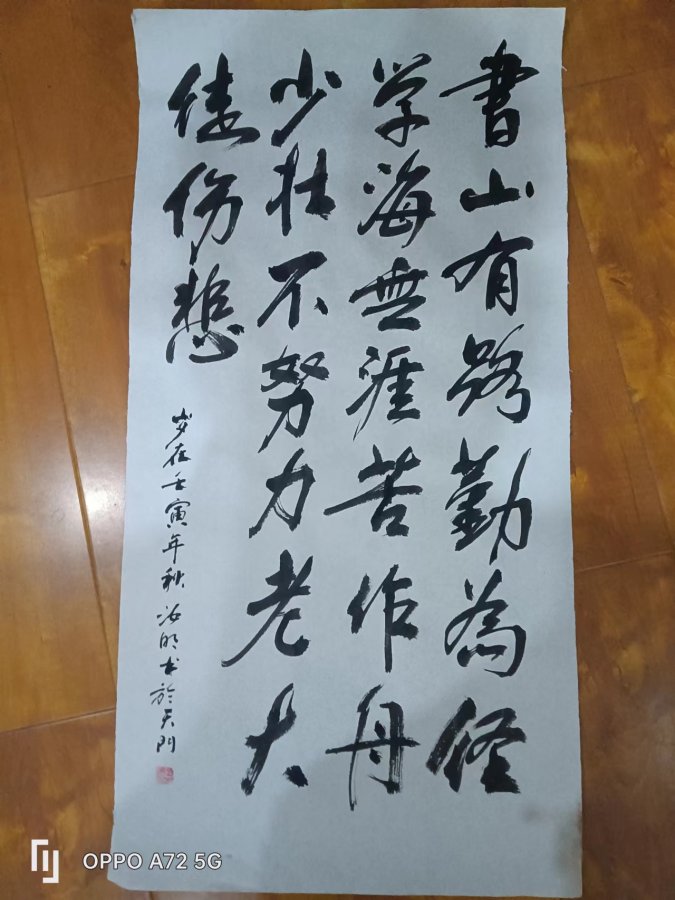 書山有路勤為径
学海無涯苦作舟
少壮不努力老大
徒伤悲
岁在壬寅年秋汝明书於天門
OPPO A72 5G